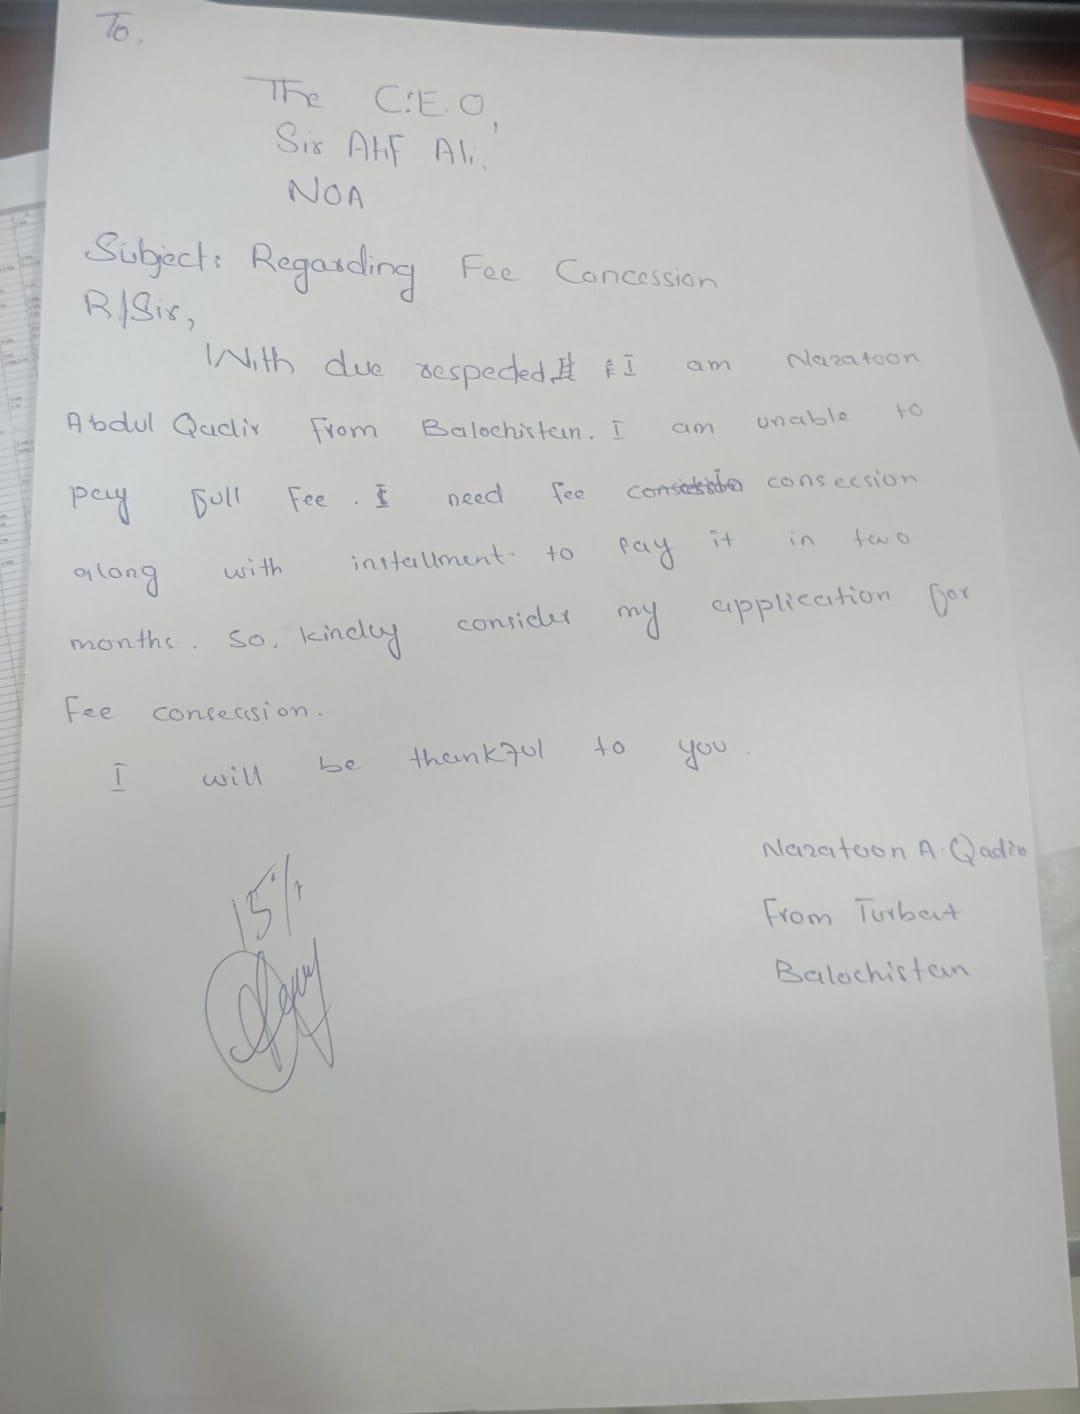 To,
The C.E.O,
Sir Atif Ali.
NOA
Subject: Regarding Fee Concession
R/Sir,
With due respected I am Nazatoon
Abdul Qadir From Balochistan. I am unable to
pay full Fee. I need fee consecsion
along with installment. to pay it in two
months. So, kindly consider my application for
Fee consecssion.
I will be thankful to you.
Nazatoon A. Qadir
From Turbat
Balochistan
15%